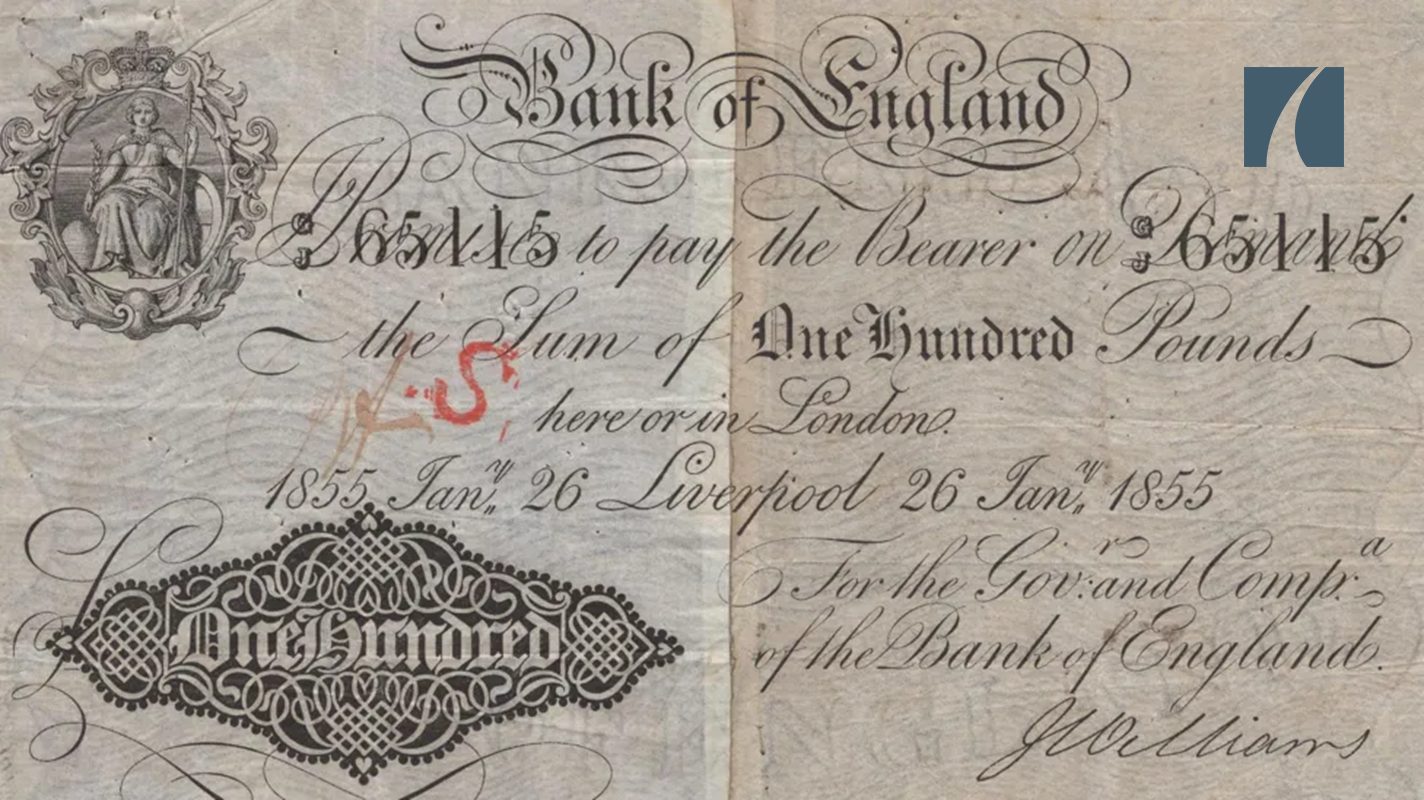 Bank of England
I Promise to pay the Bearer on Demand
65115 65115
the Sum of One Hundred Pounds
here or in London.
1855 Jany. 26 Liverpool 26 Jany. 1855
For the Govr: and Compa:
of the Bank of England.
One Hundred
JWilliams
S